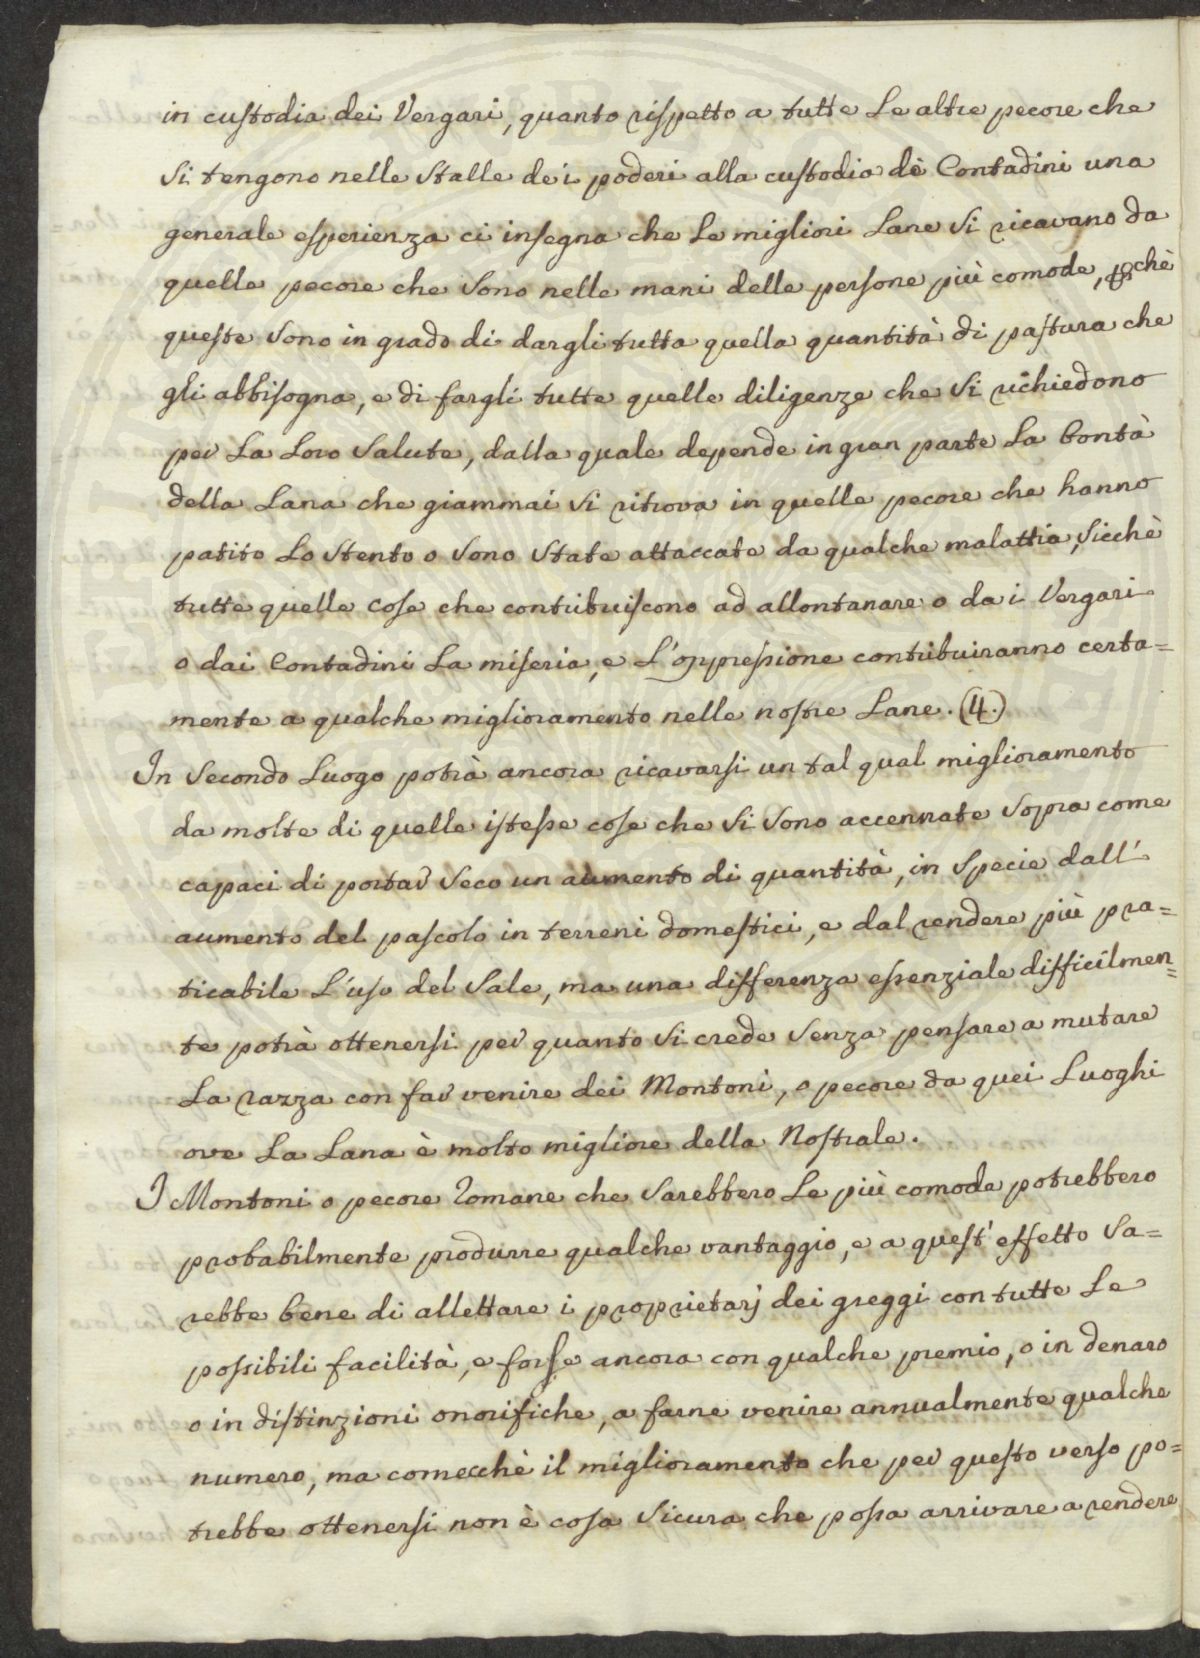 in custodia dei Vergari, quanto rispetto a tutte Le altre pecore che
Si tengono nelle Stalle dei poderi alla custodia dè Contadini una
generale esperienza ci insegna che Le migliori Lane Si ricavano da
quelle pecore che Sono nelle mani delle persone più comode, pchè
queste Sono in grado di dargli tutta quella quantità di pastura che
gli abbisogna, e di fargli tutte quelle diligenze che Si richiedono
per La Loro Salute, dalla quale depende in gran parte La bontà
della Lana che giammai Si ritrova in quelle pecore che hanno
patito Lo Stento o Sono State attaccate da qualche malattia, Sicchè
tutte quelle cose che contribuiscono ad allontanare o dai Vergari
o dai Contadini La miseria, e L'oppressione contribuiranno certa=
mente a qualche miglioramento nelle nostre Lane. (4.)
In Secondo Luogo potrà ancora ricavarsi un tal qual miglioramento
da molte di quelle istesse cose che Si Sono accennate Sopra come
capaci di portar Seco un aumento di quantità, in Specie dall'
aumento del pascolo in terreni domestici, e dal rendere più pra=
ticabile L'uso del Sale, ma una differenza essenziale difficilmen=
te potrà ottenersi per quanto Si crede Senza pensare a mutare
La razza con far venire dei Montoni, o pecore da quei Luoghi
ove La Lana è molto migliore della Nostrale.
I Montoni o pecore Romane che Sarebbero Le più comode potrebbero
probabilmente produrre qualche vantaggio, e a quest'effetto Sa=
rebbe bene di allettare i proprietarj dei greggi con tutte Le
possibili facilità, e forse ancora con qualche premio, o in denaro
o in distinzioni onorifiche, a farne venire annualmente qualche
numero, ma comecchè il miglioramento che per questo verso po=
trebbe ottenersi non è cosa Sicura che possa arrivare a rendere